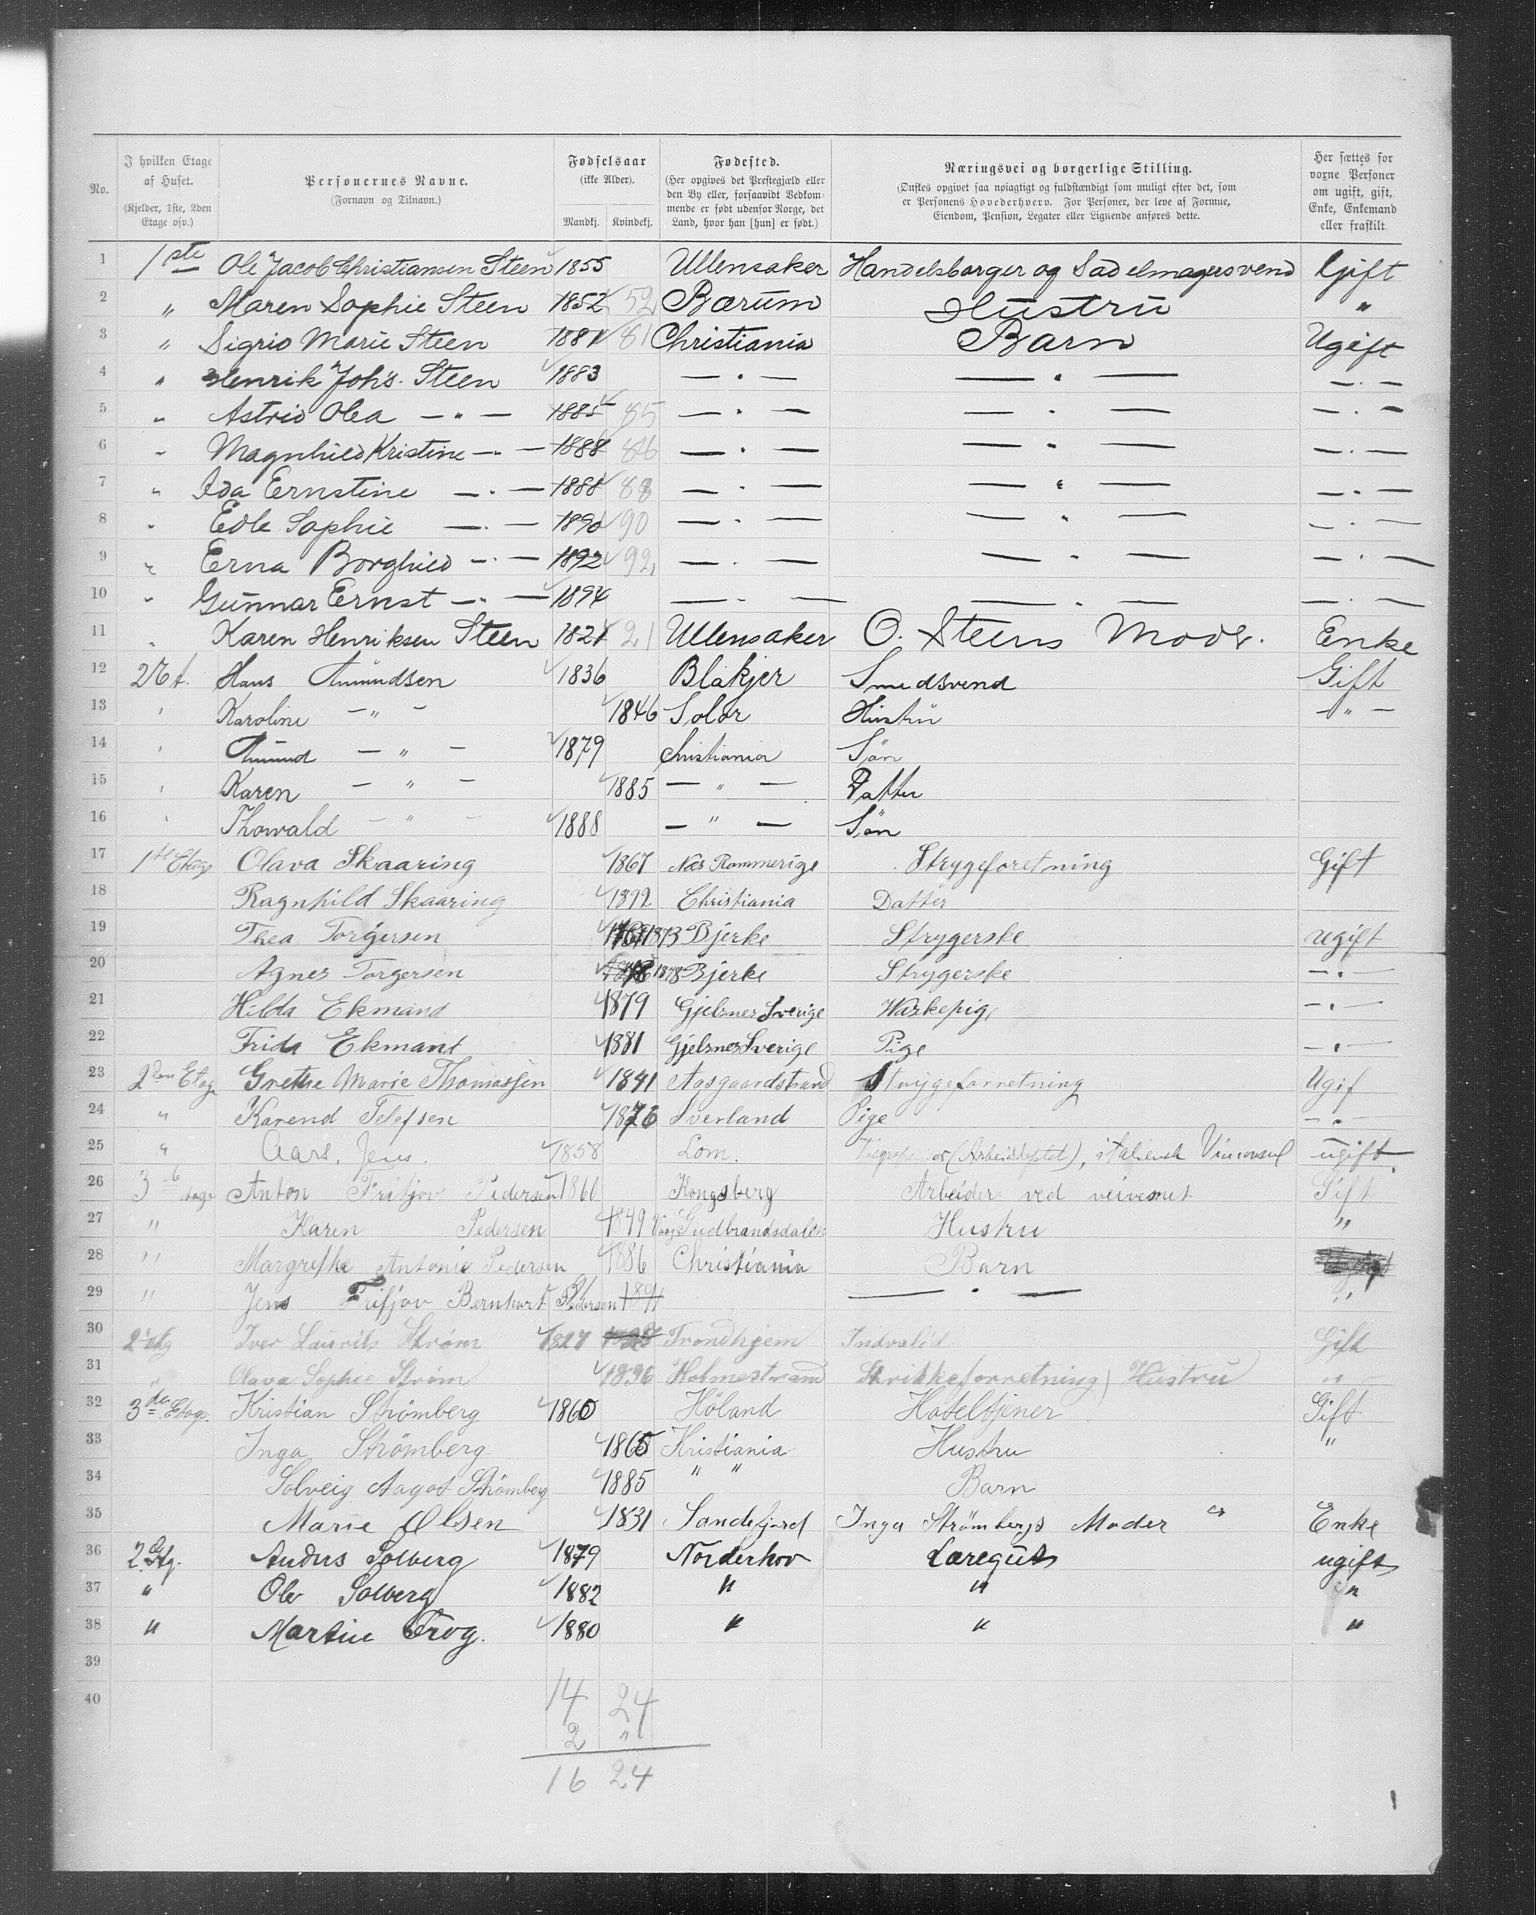 No. | I hvilken Etage af Huset. (Kjelder, 1ste, 2den Etage osv.) | Personernes Navne. (Fornavn og Tilnavn.) | Fødselsaar (ikke Alder). Mandkj. Kvindekj. | Fødested. (Her opgives det Prestegjæld eller den By eller, forsaavidt Vedkommende er født udenfor Norge, det Land, hvor han [hun] er født.) | Næringsvei og borgerlige Stilling. (Ønskes opgivet saa nøiagtigt og fuldstændigt som muligt efter det, som er Personens Hovederhverv. For Personer, der leve af Formue, Eiendom, Pension, Legater eller Lignende anføres dette. | Her sættes for voxne Personer om ugift, gift, Enke, Enkemand eller fraskilt.
1 1ste Ole Jacob Christiansen Steen 1855 Ullensaker Handelsborger og Sadelmagersvend Gift
2 " Maren Sophie Steen 1852 52 Bærum Hustru "
3 " Sigrid Marie Steen 1881 81 Christiania Barn Ugift
4 " Henrik Johs. Steen 1883 — " — — " — — " —
5 " Astrid Olea — " — 1885 85 — " — — " — — " —
6 " Magnhild Kristine — " — 1888 86 — " — — " — — " —
7 " Ida Ernstine — " — 1888 88 — " — — " — — " —
8 " Edle Sophie — " — 1890 90 — " — — " — — " —
9 " Erna Borghild — " — 1892 92 — " — — " — — " —
10 " Gunnar Ernst — " — 1894 — " — — " — — " —
11 " Karen Henriksen Steen 1821 21 Ullensaker O. Steens Moder. Enke
12 2 Et. Hans Amundsen 1836 Blakjer Smedsvend Gift
13 " Karoline — " — 1846 Solør Hustru — " —
14 " Amund — " — 1879 Christiania Søn
15 " Karen — " — 1885 — " — Datter
16 " Thorvald — " — 1888 — " — Søn
17 1ste Etage Olava Skaaring 1867 Nes Rommerige Strygeforetning Gift
18 Ragnhild Skaaring 1892 Christiania Datter
19 Thea Torgersen 1873 Bjerke Strygerske ugift
20 Agnes Torgersen 1878 Bjerke Strygerske — " —
21 Hilda Ekmand 1879 Gjelsnes Sverige Vaskepige — " —
22 Frida Ekmand 1881 Gjelsnes Sverige Pige — " —
23 2den Etage Grethe Marie Thomassen 1841 Aasgaardstrand Strygeforretning Ugif
24 " Karend Telefsen 1876 Sverland Pige — " —
25 " Aars, Jens 1858 Lom. (Arbeiderpartiet), italiensk Viceconsul ugift
26 3de Etage Anton Fritjov Pedersen 1860 Kongsberg Arbeider ved veivesnet Gift
27 " Karen Pedersen 1849 Gudbrandsdalen Hustru "
28 " Margrethe Antonie Pedersen 1886 Christiania Barn
29 " Jens Fritjov Bernhart Pedersen 1891 — " — "
30 2 Etg Iver Laurits Strøm 1827 Trondhjem Indvalid Gift
31 " Olava Sophie Strøm 1836 Holmestrand Strikkeforretning) Hustru "
32 3de Etage. Kristian Strømberg 1860 Höland Hoteltjener Gift
33 Inga Strømberg 1865 Kristiania Hustru "
34 Solveig Aagot Strømberg 1885 " " Barn
35 Marie Olsen 1831 Sandefjord Inga Strømbergs Moder Enke
36 2 Etg. Anders Solberg 1879 Norderhov Læregut ugift
37 " Ole Solberg 1882 " " "
38 " Martin Frog. 1880 " " "
39
40
14 24
2 "
16 24